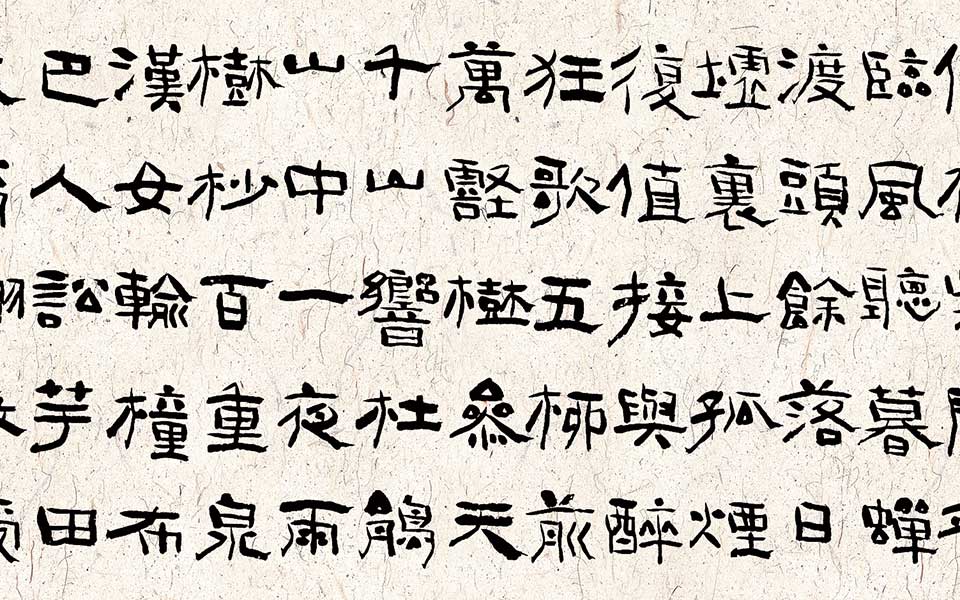 臨風聽暮蟬
渡頭餘落日
墟裏上孤煙
復值接與醉
狂歌五柳前
萬壑樹參天
千山響杜鵑
山中一夜雨
樹杪百重泉
漢女輸橦布
巴人訟芋田